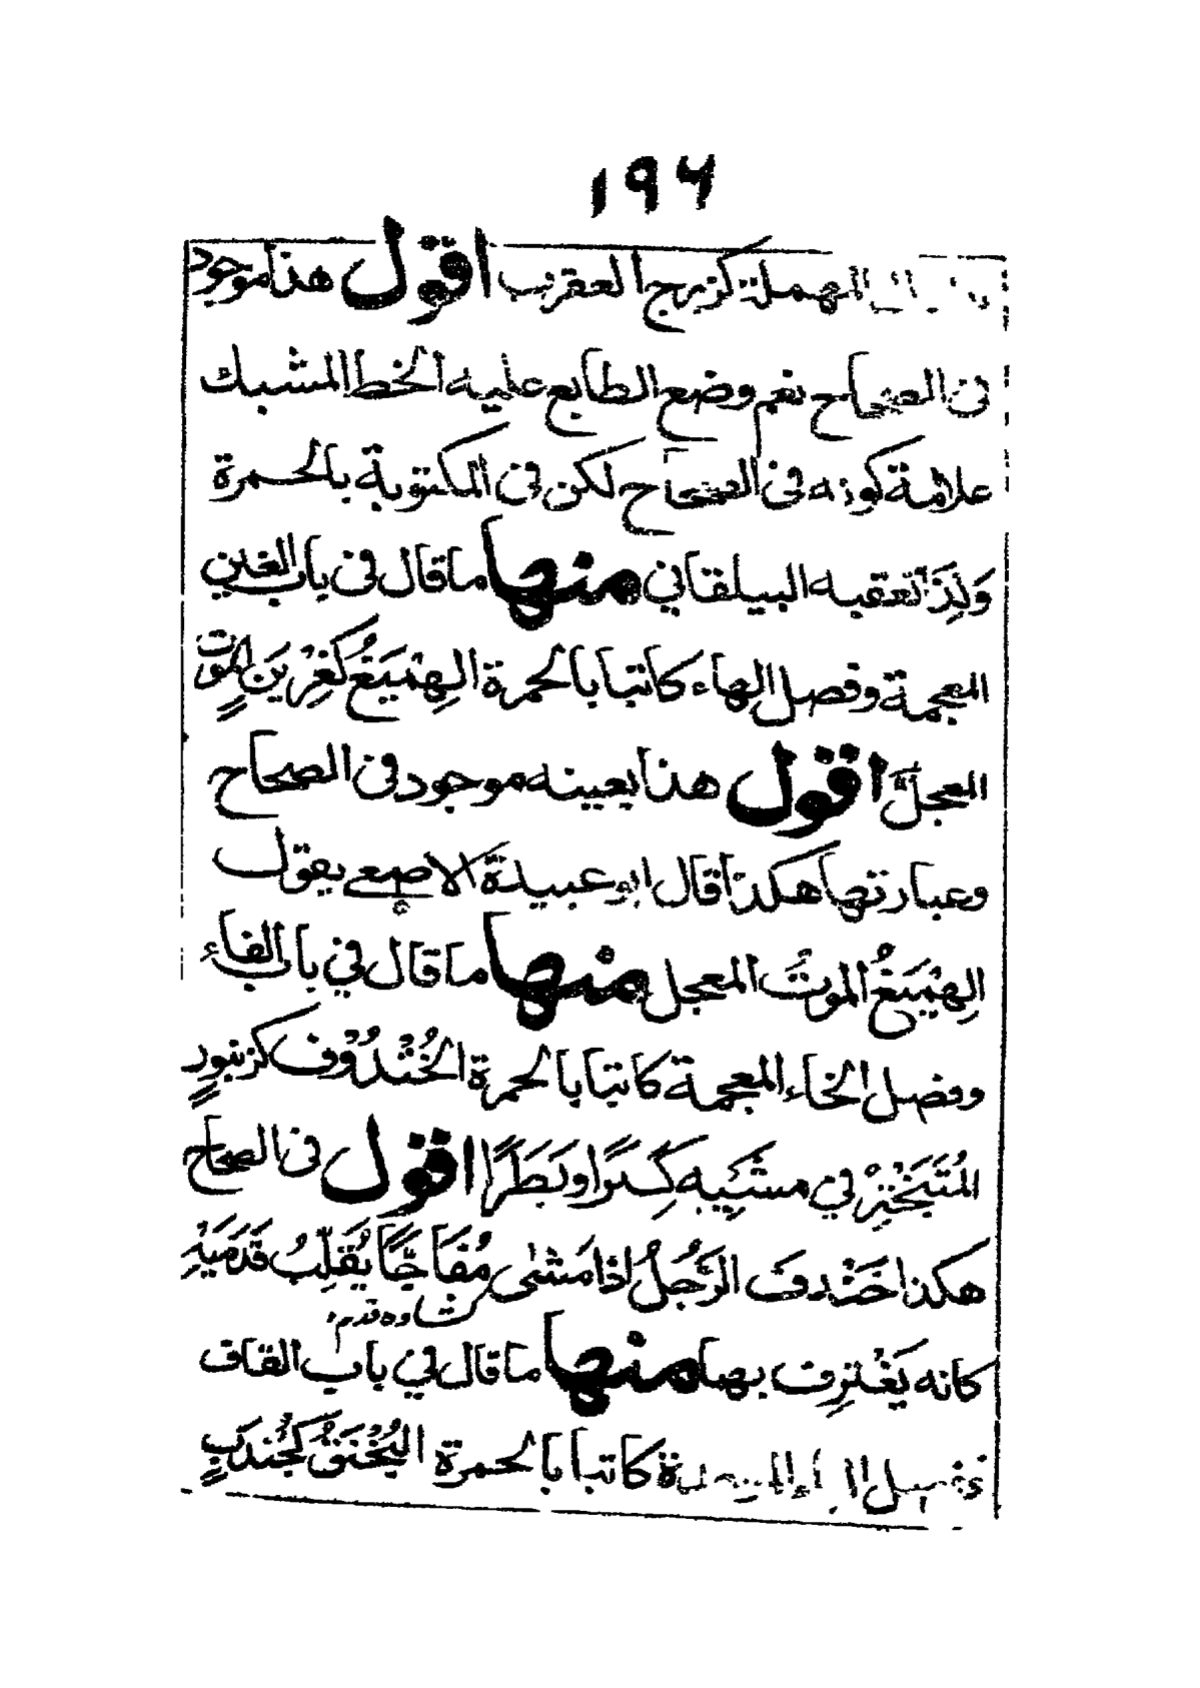 ١٩٦
المهملة كزبرج العقرب اقول هذا موجود
فى الصحاح نعم وضع الطابع عليه الخط المشبك
علامة كونه فى الصحاح لكن فى المكتوبة بالحمرة
وَلِذَا تعقبه البيلقاني منها ما قال فى باب الغين
المعجمة وفصل الهاء كاتبا بالحمرة الهِمْيَغُ كغِرْيَنٍ الموت
المعجلُ اقول هذا بعينه موجود فى الصحاح
وعبارتها هكذا قال ابو عبيدة الاصمعي يقول
الهِمْيَغُ الموتُ المعجل منها ما قال في باب الفاء
وفصل الخاء المعجمة كاتبا بالحمرة الخُنْدُوْف كزنبورٍ
المُتَبَخْتِرْ في مشْيِيهِ كِبْرًا وبَطَرًا اقول فى الصحاح
هكذا خَنْدفَ الرَّجُلُ اذا مَشى مُفَاجًّا يُقَلِّبُ قَدَمَيْهِ
كانه يَغْترِف بهما منها ما قال في باب القاف
كاتبا بالحمرة البُخْنَقُ كجُندَبٍ